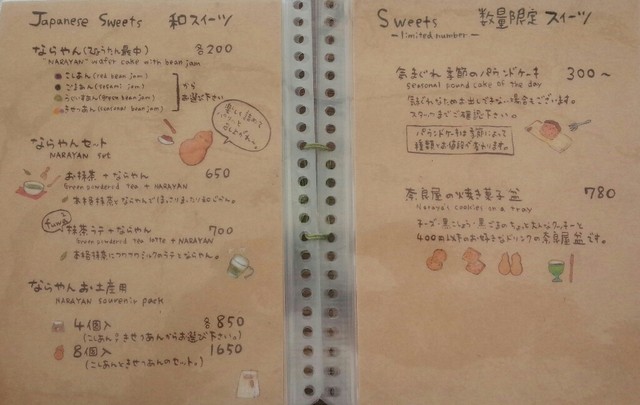 Japanese Sweets 和スイーツ
ならやん(ひょうたん最中) 各200
"NARAYAN" wafer cake with bean jam
こしあん(red bean jam)
ごまあん(sesami jam)
うぐいすあん(green bean jam)
きせつあん(seasonal bean jam)
から
お選び下さい。
ならやんセット
NARAYAN set
お抹茶+ならやん 650
Green powdered tea + NARAYAN
本格抹茶とならやんでほっこりまったり
抹茶ラテ+ならやん 700
Green powdered tea latte + NARAYAN
本格抹茶にフワフワミルクのラテとならやん。
ならやんお土産用
NARAYAN souvenir pack
4個入 各850
(こしあん・きせつあんからお選び下さい。)
8個入 1650
(こしあんときせつあんのセット。)
Sweets 数量限定スイーツ
-limited number-
気まぐれ季節のパウンドケーキ 300~
seasonal pound cake of the day
気まぐれなためお出しできない場合もございます。
スタッフまでご確認下さい。
パウンドケーキは季節によって
種類とお値段が変わります。
奈良屋の焼き菓子盆 780
Naraya's cookies on a tray
チーズ・黒こしょう・黒ごまのちょっと大人なクッキーと
400円以下のお好きなドリンクの奈良屋盆です。